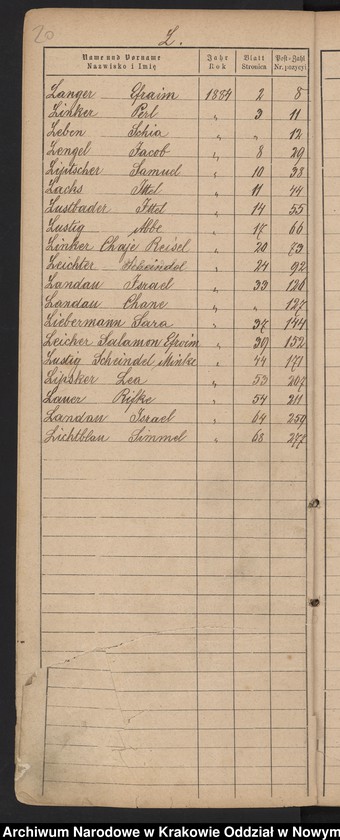 20
L.
Name und Vorname Jahr Blatt Post-Zahl
Nazwisko i Imię Rok Stronica Nr. pozycyi
Langer Efraim 1884 2 8
Linker Perl " 3 11
Leben Schia " " 12
Lengel Jacob " 8 29
Lipitscher Samuel " 10 38
Lachs Ittel " 11 44
Lustbader Ittel " 14 55
Lustig Abbe " 17 66
Linker Chaje Reisel " 20 79
Leichter Scheindel " 24 92
Landau Israel " 33 126
Landau Chane " " 127
Liebermann Sara " 37 144
Leicher Salamon Efroim " 39 152
Lustig Scheindel Minke " 44 171
Lipsker Lea " 53 207
Lauer Rifke " 54 211
Landau Israel " 64 259
Lichtblau Simmel " 68 277
Archiwum Narodowe w Krakowie Oddział w Nowym